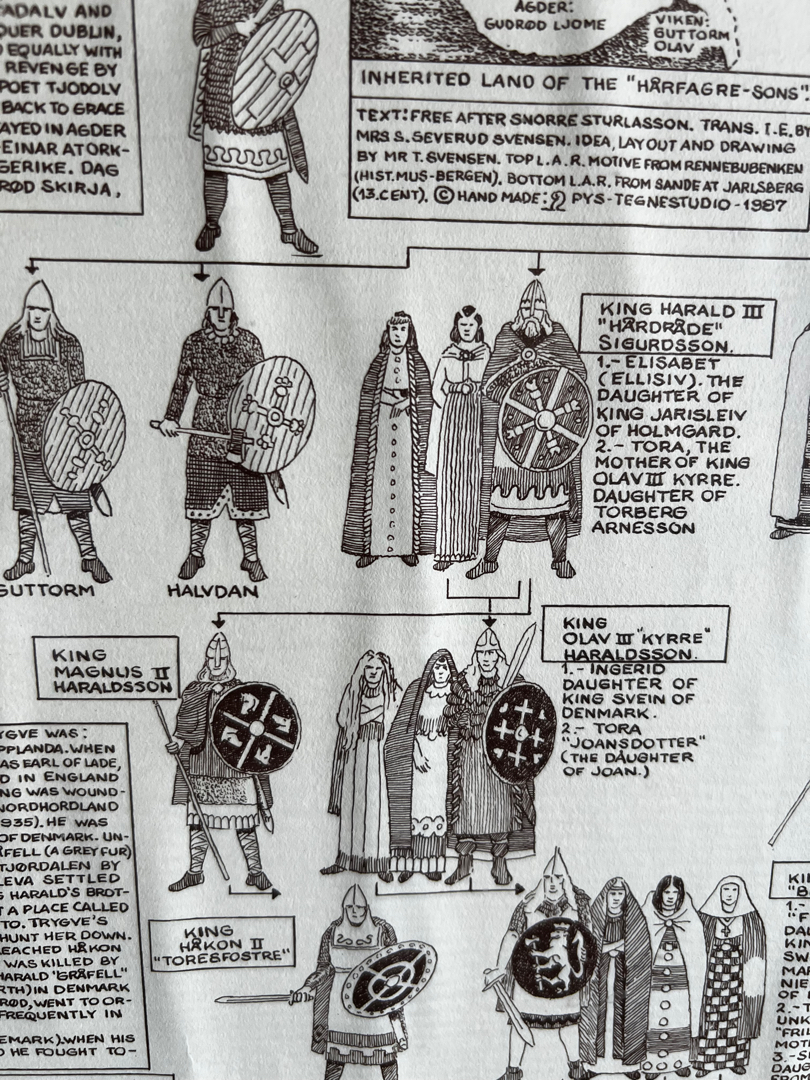 ADALV AND
QUER DUBLIN,
EQUALLY WITH
REVENGE BY
POET TJODOLV
BACK TO GRACE
AYED IN AGDER
EINAR AT ORK-
GERIKE. DAG
RØD SKIRJA,
AGDER:
GUDRØD LJOME
VIKEN:
GUTTORM
OLAV
INHERITED LAND OF THE "HÅRFAGRE-SONS".
TEXT: FREE AFTER SNORRE STURLASSON. TRANS. I.E. BY
MRS S. SEVERUD SVENSEN. IDEA, LAY OUT AND DRAWING
BY MR T. SVENSEN. TOP L.A.R. MOTIVE FROM RENNEBUBENKEN
(HIST. MUS-BERGEN). BOTTOM L.A.R. FROM SANDE AT JARLSBERG
(13. CENT). © HAND MADE: PYS-TEGNESTUDIO-1987
GUTTORM
HALVDAN
KING HARALD III
"HÅRDRÅDE"
SIGURDSSON.
1.- ELISABET
(ELLISIV). THE
DAUGHTER OF
KING JARISLEIV
OF HOLMGARD.
2.- TORA, THE
MOTHER OF KING
OLAV III KYRRE.
DAUGHTER OF
TORBERG
ARNESSON
KING
MAGNUS II
HARALDSSON
KING
OLAV III "KYRRE"
HARALDSSON.
1.- INGERID
DAUGHTER OF
KING SVEIN OF
DENMARK.
2.- TORA
"JOANSDOTTER"
(THE DAUGHTER
OF JOAN.)
YGVE WAS:
PPLANDA. WHEN
AS EARL OF LADE,
D IN ENGLAND
NG WAS WOUND-
NORDHORDLAND
(935). HE WAS
OF DENMARK. UN-
ÅFELL (A GREY FUR)
TJØRDALEN BY
LEVA SETTLED
G HARALD'S BROT-
T A PLACE CALLED
TO. TRYGVE'S
HUNT HER DOWN.
EACHED HÅKON
WAS KILLED BY
HARALD "GRÅFELL"
RTH) IN DENMARK
RØD, WENT TO OR-
FREQUENTLY IN
EMARK). WHEN HIS
D HE FOUGHT TO-
KING
HÅKON II
"TORESFOSTRE"
KI
"B
1.-
"F
DAU
KIN
SW
MA
NIE
OF
2.-T
UNK
"FRIL
MOT
3.-S
DAU
FROM